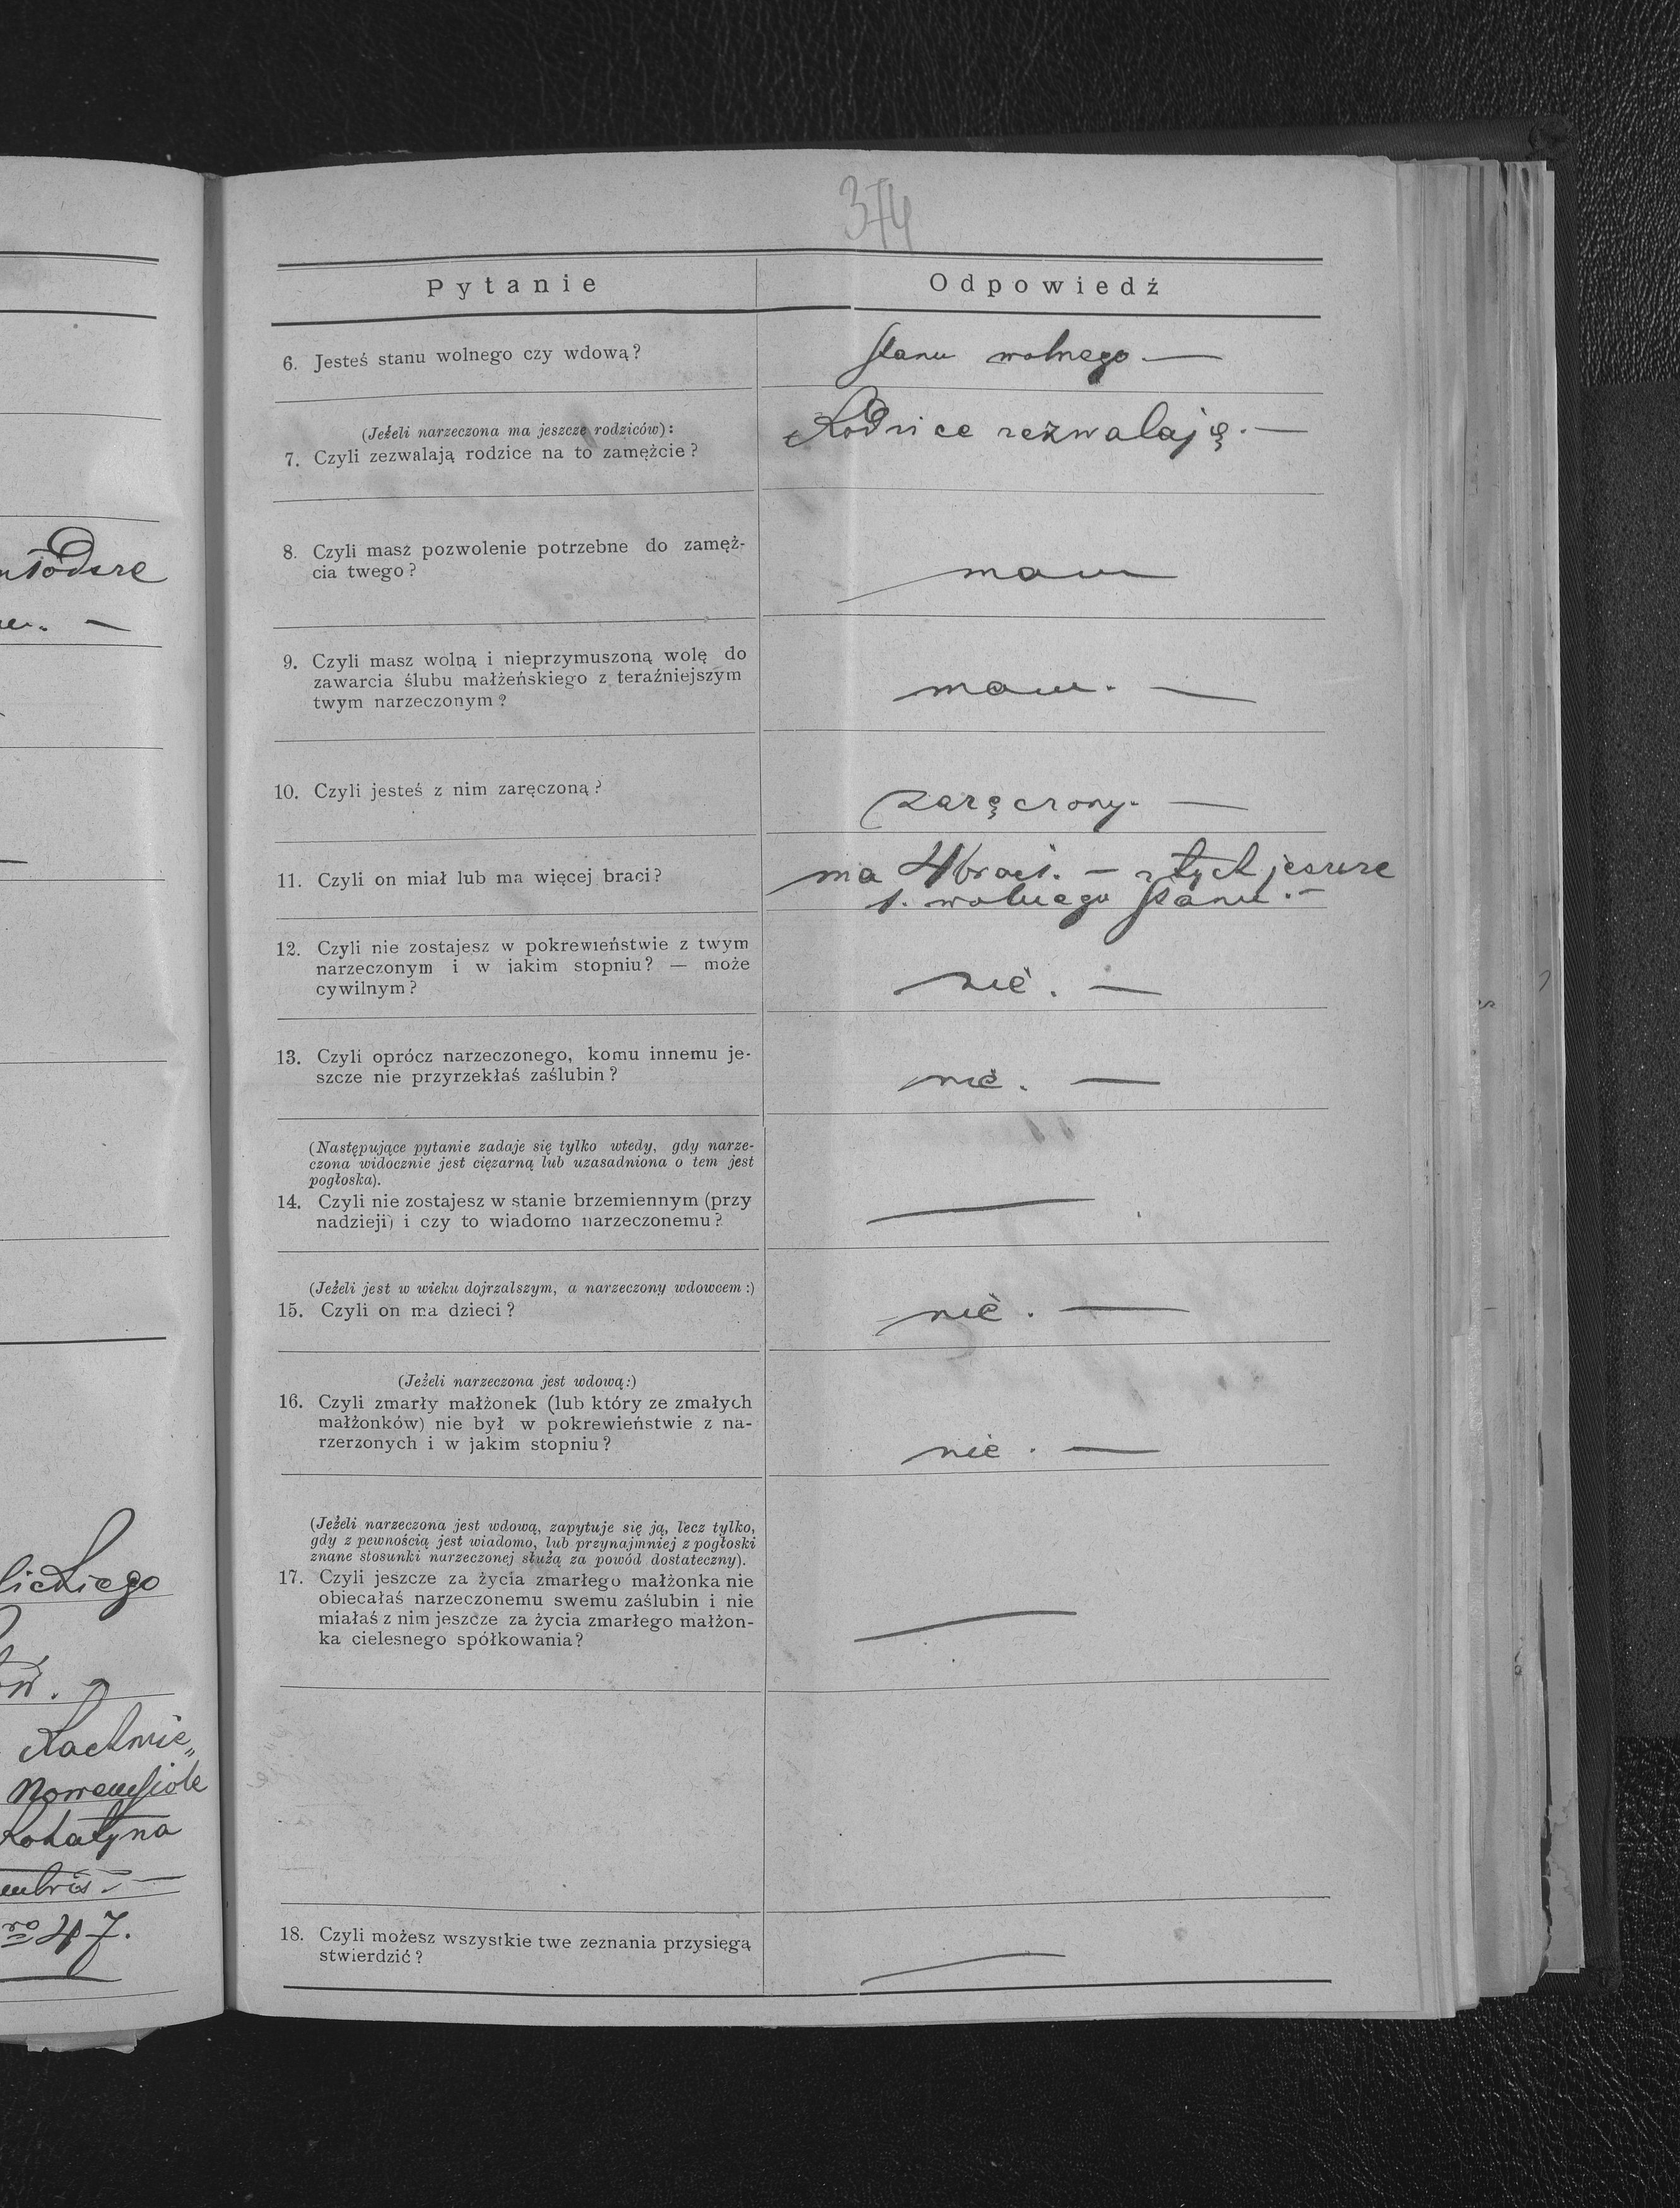 młodsze
lickiego
Nowemsiole
Rohatyna
47.
374
Pytanie
Odpowiedź
6. Jesteś stanu wolnego czy wdową?
stanu wolnego —
(Jeżeli narzeczona ma jeszcze rodziców):
7. Czyli zezwalają rodzice na to zamężcie?
Rodzice zezwalają. —
8. Czyli masz pozwolenie potrzebne do zamęż-
cia twego?
mam
9. Czyli masz wolną i nieprzymuszoną wolę do
zawarcia ślubu małżeńskiego z teraźniejszym
twym narzeczonym?
mam. —
10. Czyli jesteś z nim zaręczoną?
zaręczony. —
11. Czyli on miał lub ma więcej braci?
ma 4 braci. — z tych jeszcze
1. wolnego stanu. —
12. Czyli nie zostajesz w pokrewieństwie z twym
narzeczonym i w jakim stopniu? — może
cywilnym?
nie. —
13. Czyli oprócz narzeczonego, komu innemu je-
szcze nie przyrzekłaś zaślubin?
nie. —
(Następujące pytanie zadaje się tylko wtedy, gdy narze-
czona widocznie jest ciężarną lub uzasadniona o tem jest
pogłoska).
14. Czyli nie zostajesz w stanie brzemiennym (przy
nadzieji) i czy to wiadomo narzeczonemu?
—
(Jeżeli jest w wieku dojrzalszym, a narzeczony wdowcem:)
15. Czyli on ma dzieci?
nie. —
(Jeżeli narzeczona jest wdową:)
16. Czyli zmarły małżonek (lub który ze zmałych
małżonków) nie był w pokrewieństwie z na-
rzerzonych i w jakim stopniu?
nie. —
(Jeżeli narzeczona jest wdową, zapytuje się ją, lecz tylko,
gdy z pewnością jest wiadomo, lub przynajmniej z pogłoski
znane stosunki narzeczonej służą za powód dostateczny).
17. Czyli jeszcze za życia zmarłego małżonka nie
obiecałaś narzeczonemu swemu zaślubin i nie
miałaś z nim jeszcze za życia zmarłego małżon-
ka cielesnego spółkowania?
—
18. Czyli możesz wszystkie twe zeznania przysięgą
stwierdzić?
—